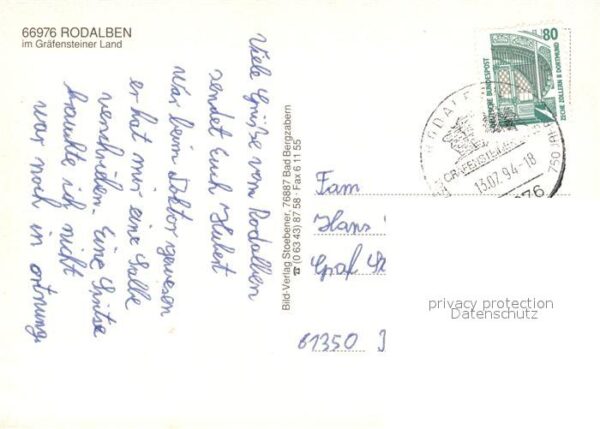 66976 RODALBEN
im Gräfensteiner Land
Viele Grüße vom Rodalben
sendet Euch Hubert
War beim Doktor gewesen
er hat mir eine Salbe
verschrieben. Eine Spritze
brauchte ich nicht
war noch in ortnung.
Bild-Verlag Stoebener, 76887 Bad Bergzabern
☎ (0 63 43) 87 58 · Fax 6 11 55
80
DEUTSCHE BUNDESPOST
ZECHE ZOLLERN II DORTMUND
RODALBEN
GRÄFENSTEINER
13.07.94-18
750 JAHRE
66976
Fam
Hans
Graf
61350
privacy protection
Datenschutz